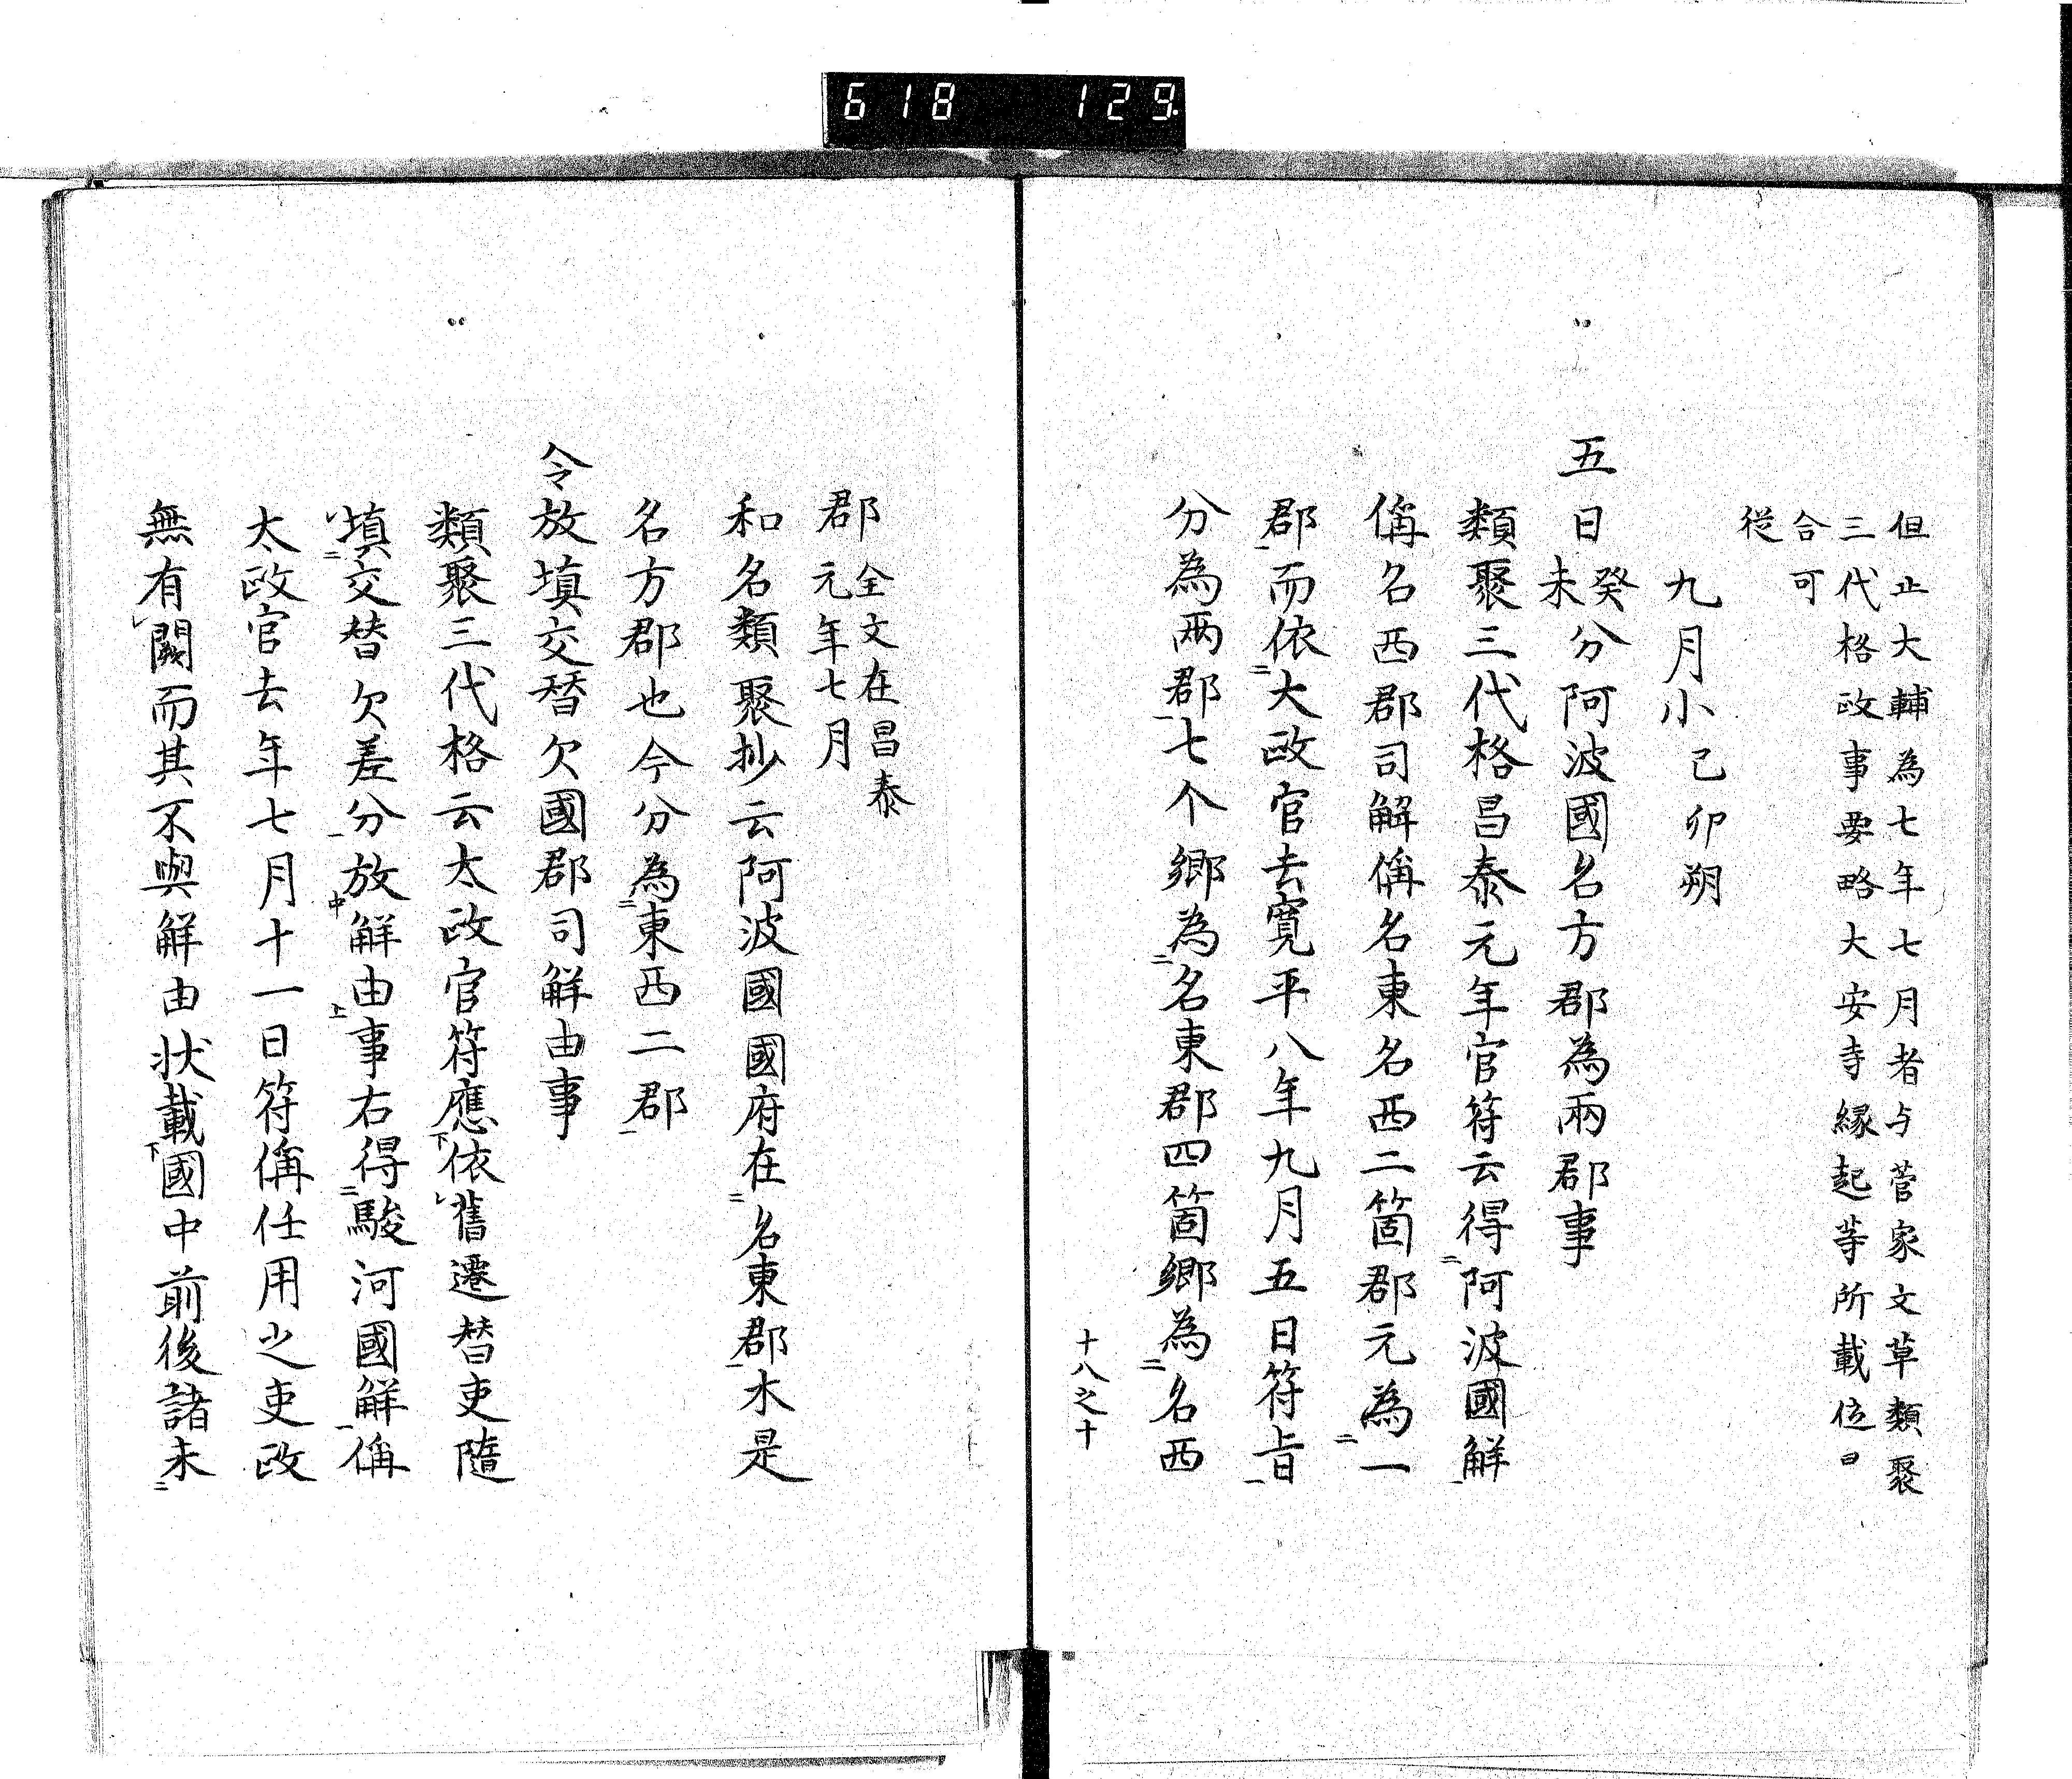 618 129.
但止大輔為七年七月者与菅家文草類聚
三代格政事要略大安寺縁起等所載位曰
合可
従
九月小己卯朔
五日癸未分阿波國名方郡為兩郡事
類聚三代格昌泰元年官符云得二阿波國解一
偁名西郡司解偁名東名西二箇郡元為二一
郡一而依二大政官去寛平八年九月五日符旨一
分為兩郡一七个郷為二名東郡四箇郷為二名西
十八之十
郡全文在昌泰元年七月
和名類聚抄云阿波國國府在二名東郡一水是
名方郡也今分為二東西二郡一
令放填交替欠國郡司解由事
類聚三代格云太政官符應下依レ舊遷替吏隨
レ填二交替欠差分一放中解由上事右得二駿河國解一偁
太政官去年七月十一日符偁任用之吏改
無有レ闕而其不與解由状載下國中前後諸未二